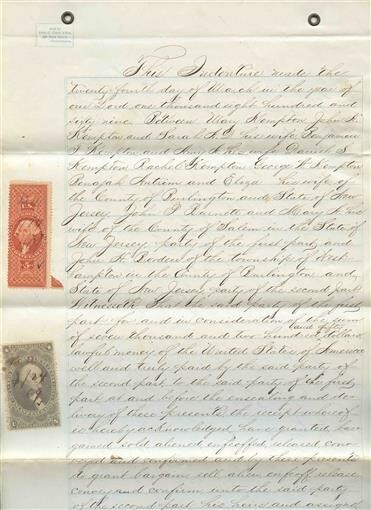 This Indenture made the
twenty fourth day of March in the year of
our Lord one thousand eight hundred and
sixty nine Between Mary Kempton John K.
Kempton and Sarah A. D. his wife Benjamin
Kempton and Amy his wife Daniel S
Kempton Rachel Kempton George W Kempton
Antrim and Eliza his wife of
the County of Burlington and State of New
Jersey John P and Mary his
wife of the County of Salem in the State of
New Jersey party of the first part and
John H. Boden of the township of West
hampton in the County of Burlington and
State of New Jersey party of the second part
Witnesseth That the said party of the first
part for and in consideration of the sum
of seven thousand and two hundred and fifty dollars
lawful money of the United States of America
well and truly paid by the said party of
the second part to the said party of the first
part at and before the ensealing and de
livery of these presents the receipt whereof
is hereby acknowledged have granted bar
gained sold aliened enfeoffed released conv
eyed and confirmed and by these presents
do grant bargain sell alien enfeoff release
convey and confirm unto the said party
of the second part his heirs and assigns